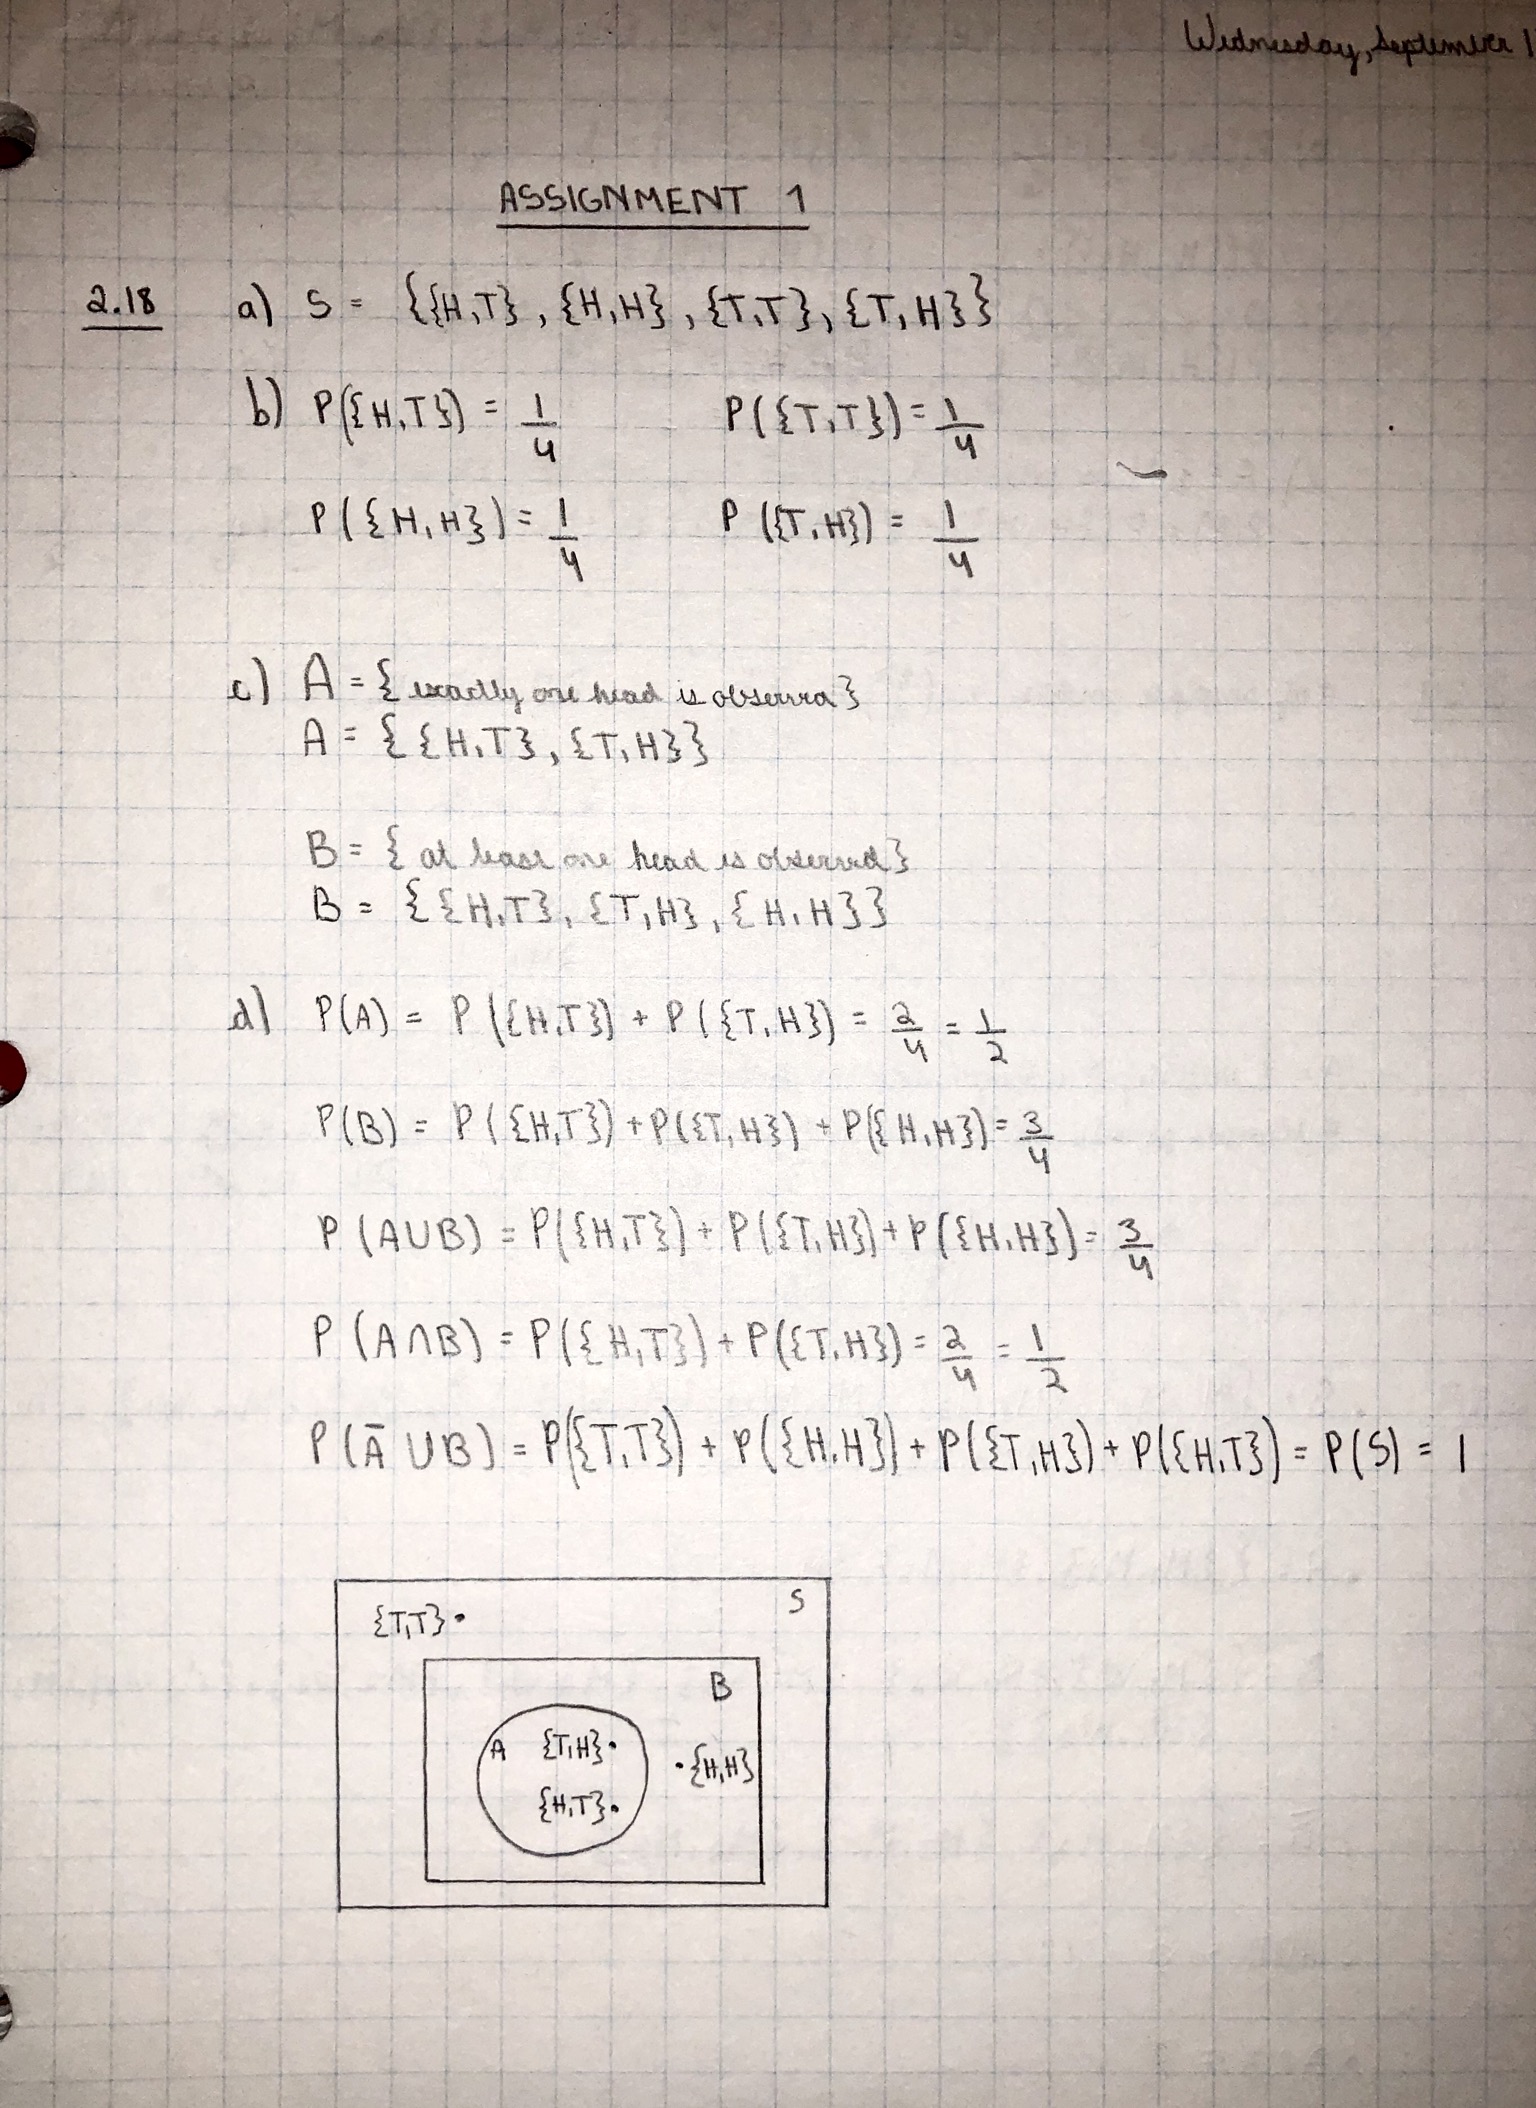 Wednesday, September 1
ASSIGNMENT 1
2.18 a) S = {{H,T}, {H,H}, {T,T}, {T,H}}
b) P({H,T}) = 1/4 P({T,T}) = 1/4
P({H,H}) = 1/4 P({T,H}) = 1/4
c) A = { exactly one head is }
A = {{H,T}, {T,H}}
B = { at least one head is observed}
B = {{H,T}, {T,H}, {H,H}}
d) P(A) = P({H,T}) + P({T,H}) = 2/4 = 1/2
P(B) = P({H,T}) + P({T,H}) + P({H,H}) = 3/4
P(A∪B) = P({H,T}) + P({T,H}) + P({H,H}) = 3/4
P(A∩B) = P({H,T}) + P({T,H}) = 2/4 = 1/2
P(Ā∪B) = P({T,T}) + P({H,H}) + P({T,H}) + P({H,T}) = P(S) = 1
{T,T} S
B
A {T,H}
{H,H}
{H,T}